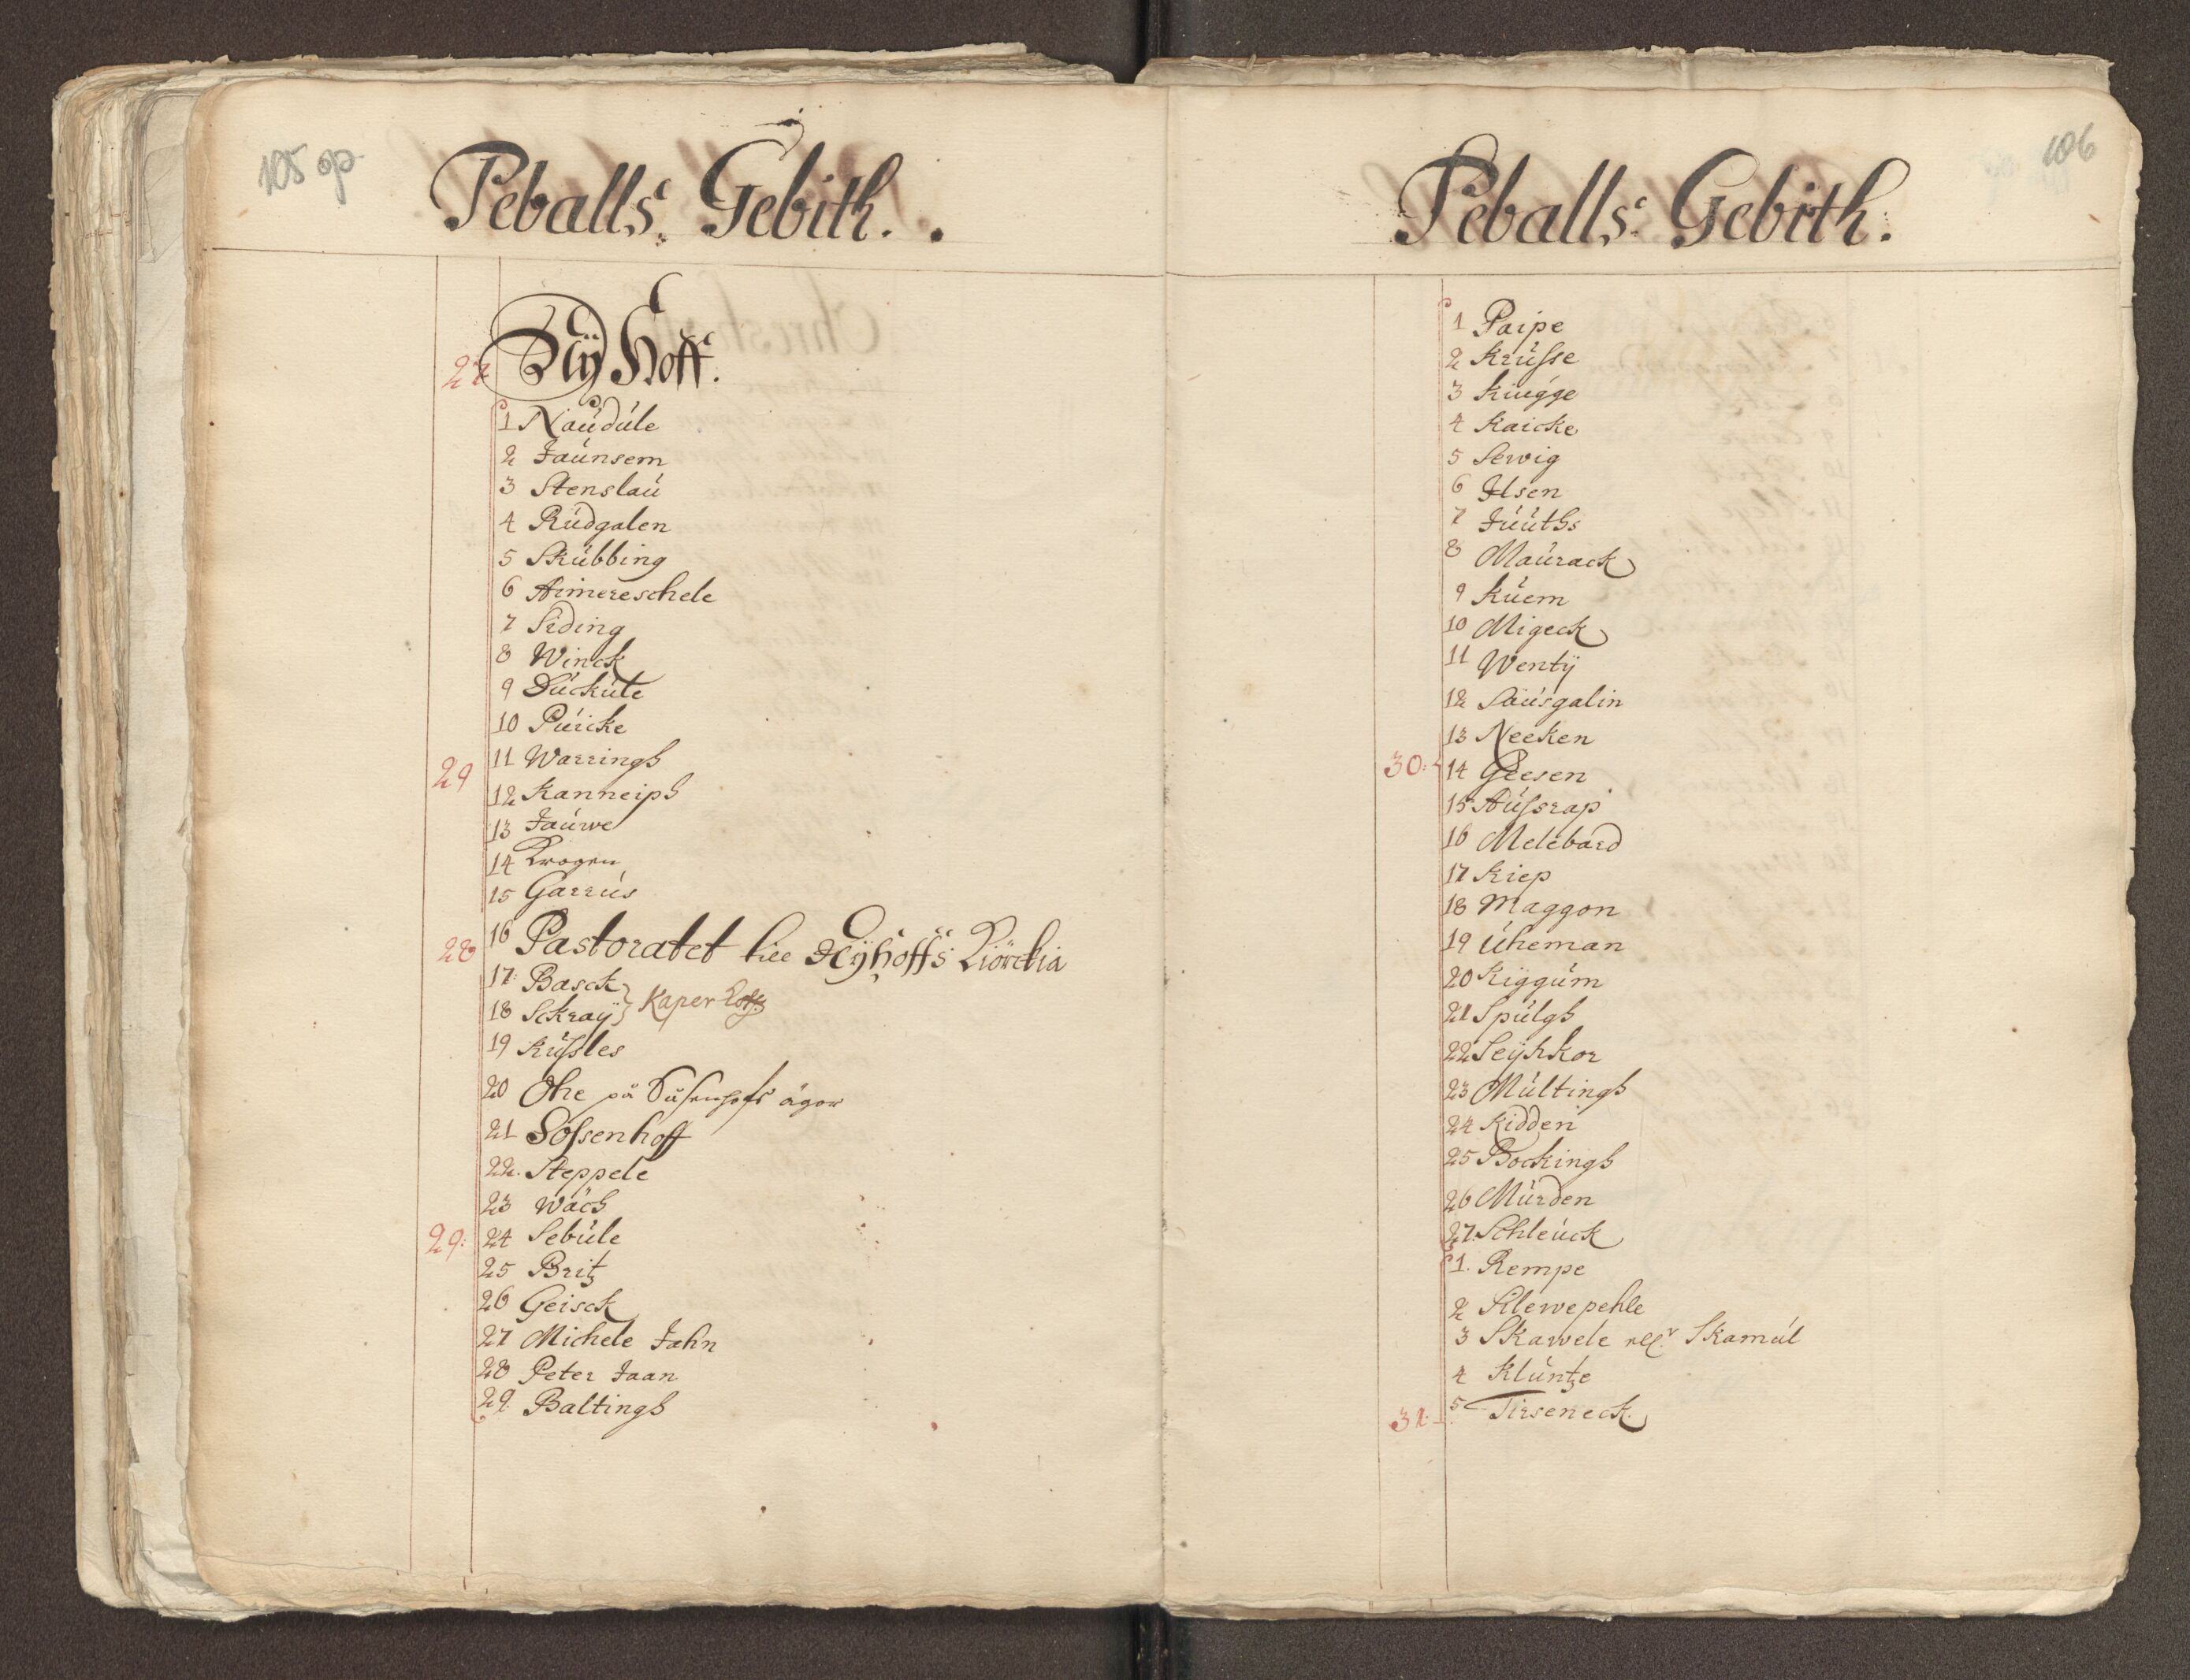 105 op
Peballs: Gebith.
27 Nÿ Hoff.
1 Naudule
2 Jaunsem
3 Stenslau
4 Rudgalen
5 Skubbing
6 Aimereschele
7 Siding
8 Winck
9 Duckute
10 Puricke
29 11 Warrings
12 Kanneips
13 Jauwe
14 Krogen
15 Garrus
28 16 Pastoratet till Nÿhoffs Kiörckia
17: Basck
18 Sckraÿ } Kaper
19 Kussles
20 Ohe på Susenhofs ägor
21 Sossenhoff
22. Steppele
23 Wäcs
29: 24 Sebule
25 Britz
26 Geisck
27 Michele Jahn
28 Peter Jaan
29 Baltings
106
Peballs: Gebith:
1 Paipe
2 Krusse
3 Kiugge
4 Kaicke
5 Sewig
6 Ilsen
7 Juuths
8 Maurack
9 Kuem
10 Migeck
11 Wentÿ
12 Sausgalin
13 Neeken
30: 14 Geesen
15 Aussrap
16 Melebard
17 Kiep
18 Maggon
19 Uheman
20 Kiggum
21 Spulgs
22 Seÿkkor
23 Multings
24 Kidden
25 Bockings
26 Murden
27. Schleuck
1. Rempe
2 Klewepehle
3 Skawele ell:r Skamul
4 Kluntze
31. 5 Tirseneck.